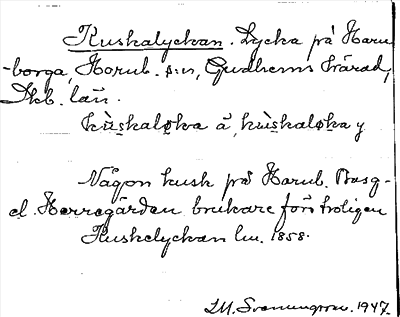 Kuskalyckan. Lycka på Horn
-borga, Hornb. s:n, Gudhems härad,
Skb. län.
kùskaløka å, kùskaløka y
Någon kusk på Hornb. Bosg-
el. Herregården brukare för troligen
Kuskelyckan lm. 1858.
L.M. Svenungsson. 1947.